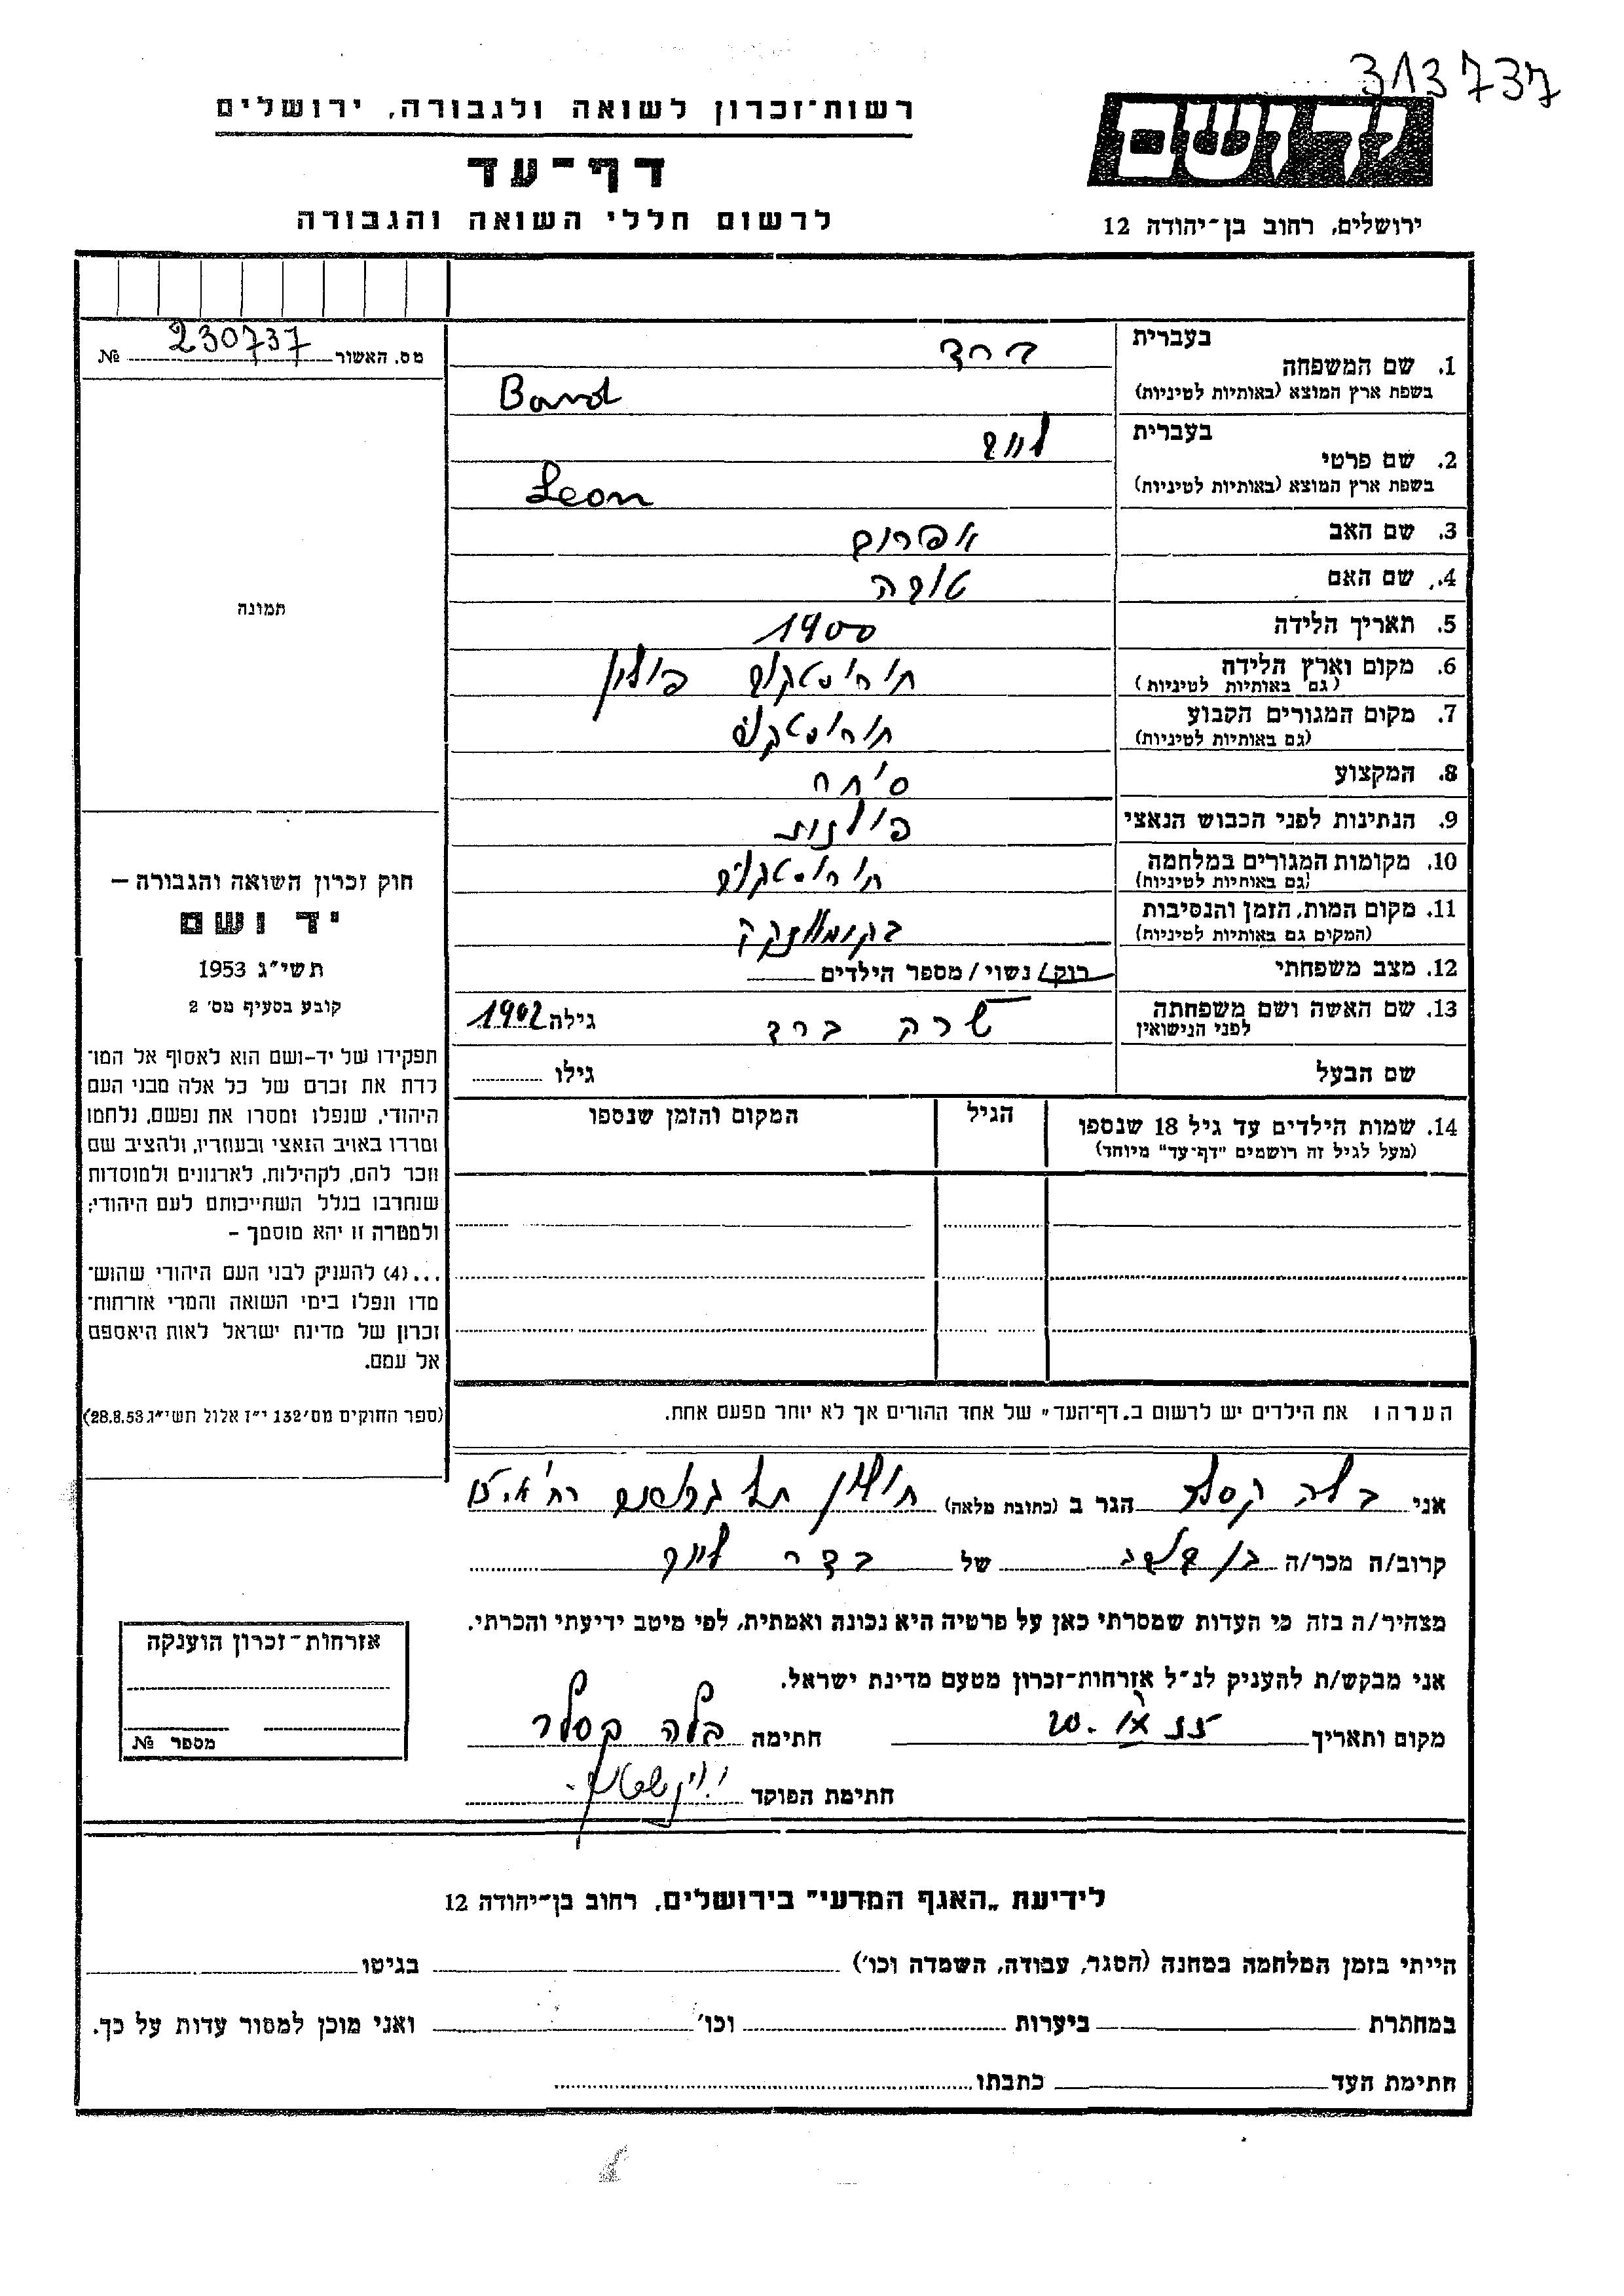 313737
ידושם
רשות־זכרון לשואה ולגבורה, ירושלים
דף־עד
לרשום חללי השואה והגבורה
ירושלים, רחוב בן־יהודה 12
מס. האשור 230737 №
תמונה
בעברית
1. שם המשפחה ברד
בשפת ארץ המוצא (באותיות לטיניות) Bard
בעברית
2. שם פרטי
בשפת ארץ המוצא (באותיות לטיניות) Leon
3. שם האב אפרים
4. שם האם טובה
5. תאריך הלידה 1900
6. מקום וארץ הלידה פולין
(גם באותיות לטיניות)
7. מקום המגורים הקבוע
(גם באותיות לטיניות)
8. המקצוע סוחר
9. הנתינות לפני הכבוש הנאצי פולנית
10. מקומות המגורים במלחמה
(גם באותיות לטיניות)
11. מקום המות, הזמן והנסיבות
(המקום גם באותיות לטיניות)
12. מצב משפחתי רוק/ נשוי/ מספר הילדים
13. שם האשה ושם משפחתה שרה ברד גילה 1902
לפני הנישואין
שם הבעל גילו
14. שמות הילדים עד גיל 18 שנספו הגיל המקום והזמן שנספו
(מעל לגיל זה רושמים "דף־עד" מיוחד)
חוק זכרון השואה והגבורה —
יד ושם
תשי"ג 1953
קובע בסעיף מס' 2
תפקידו של יד-ושם הוא לאסוף אל המו־
לדת את זכרם של כל אלה מבני העם
היהודי, שנפלו ומסרו את נפשם, נלחמו
ומרדו באויב הנאצי ובעוזריו, ולהציב שם
וזכר להם, לקהילות, לארגונים ולמוסדות
שנחרבו בגלל השתייכותם לעם היהודי;
ולמטרה זו יהא מוסמך –
...(4) להעניק לבני העם היהודי שהוש־
מדו ונפלו בימי השואה והמרי אזרחות־
זכרון של מדינת ישראל לאות היאספם
אל עמם.
(ספר החוקים מס' 132 י"ז אלול תשי"ג 28.8.53)
הערה ו את הילדים יש לרשום ב„דף־העד" של אחד ההורים אך לא יותר מפעם אחת.
אני בלה קסלר הגר ב (כתובת מלאה) חולון
קרוב/ה מכר/ה של ברד
מצהיר/ה בזה כי העדות שמסרתי כאן על פרטיה היא נכונה ואמתית, לפי מיטב ידיעתי והכרתי.
אני מבקש/ת להעניק לנ"ל אזרחות־זכרון מטעם מדינת ישראל.
מקום ותאריך חתימה בלה קסלר
חתימת הפוקד
אזרחות־זכרון הוענקה
מספר №
לידיעת „האגף המדעי" בירושלים, רחוב בן־יהודה 12
הייתי בזמן המלחמה במחנה (הסגר, עבודה, השמדה וכו') בגיטו
במחתרת ביערות וכו' ואני מוכן למסור עדות על כך.
חתימת העד כתבתו